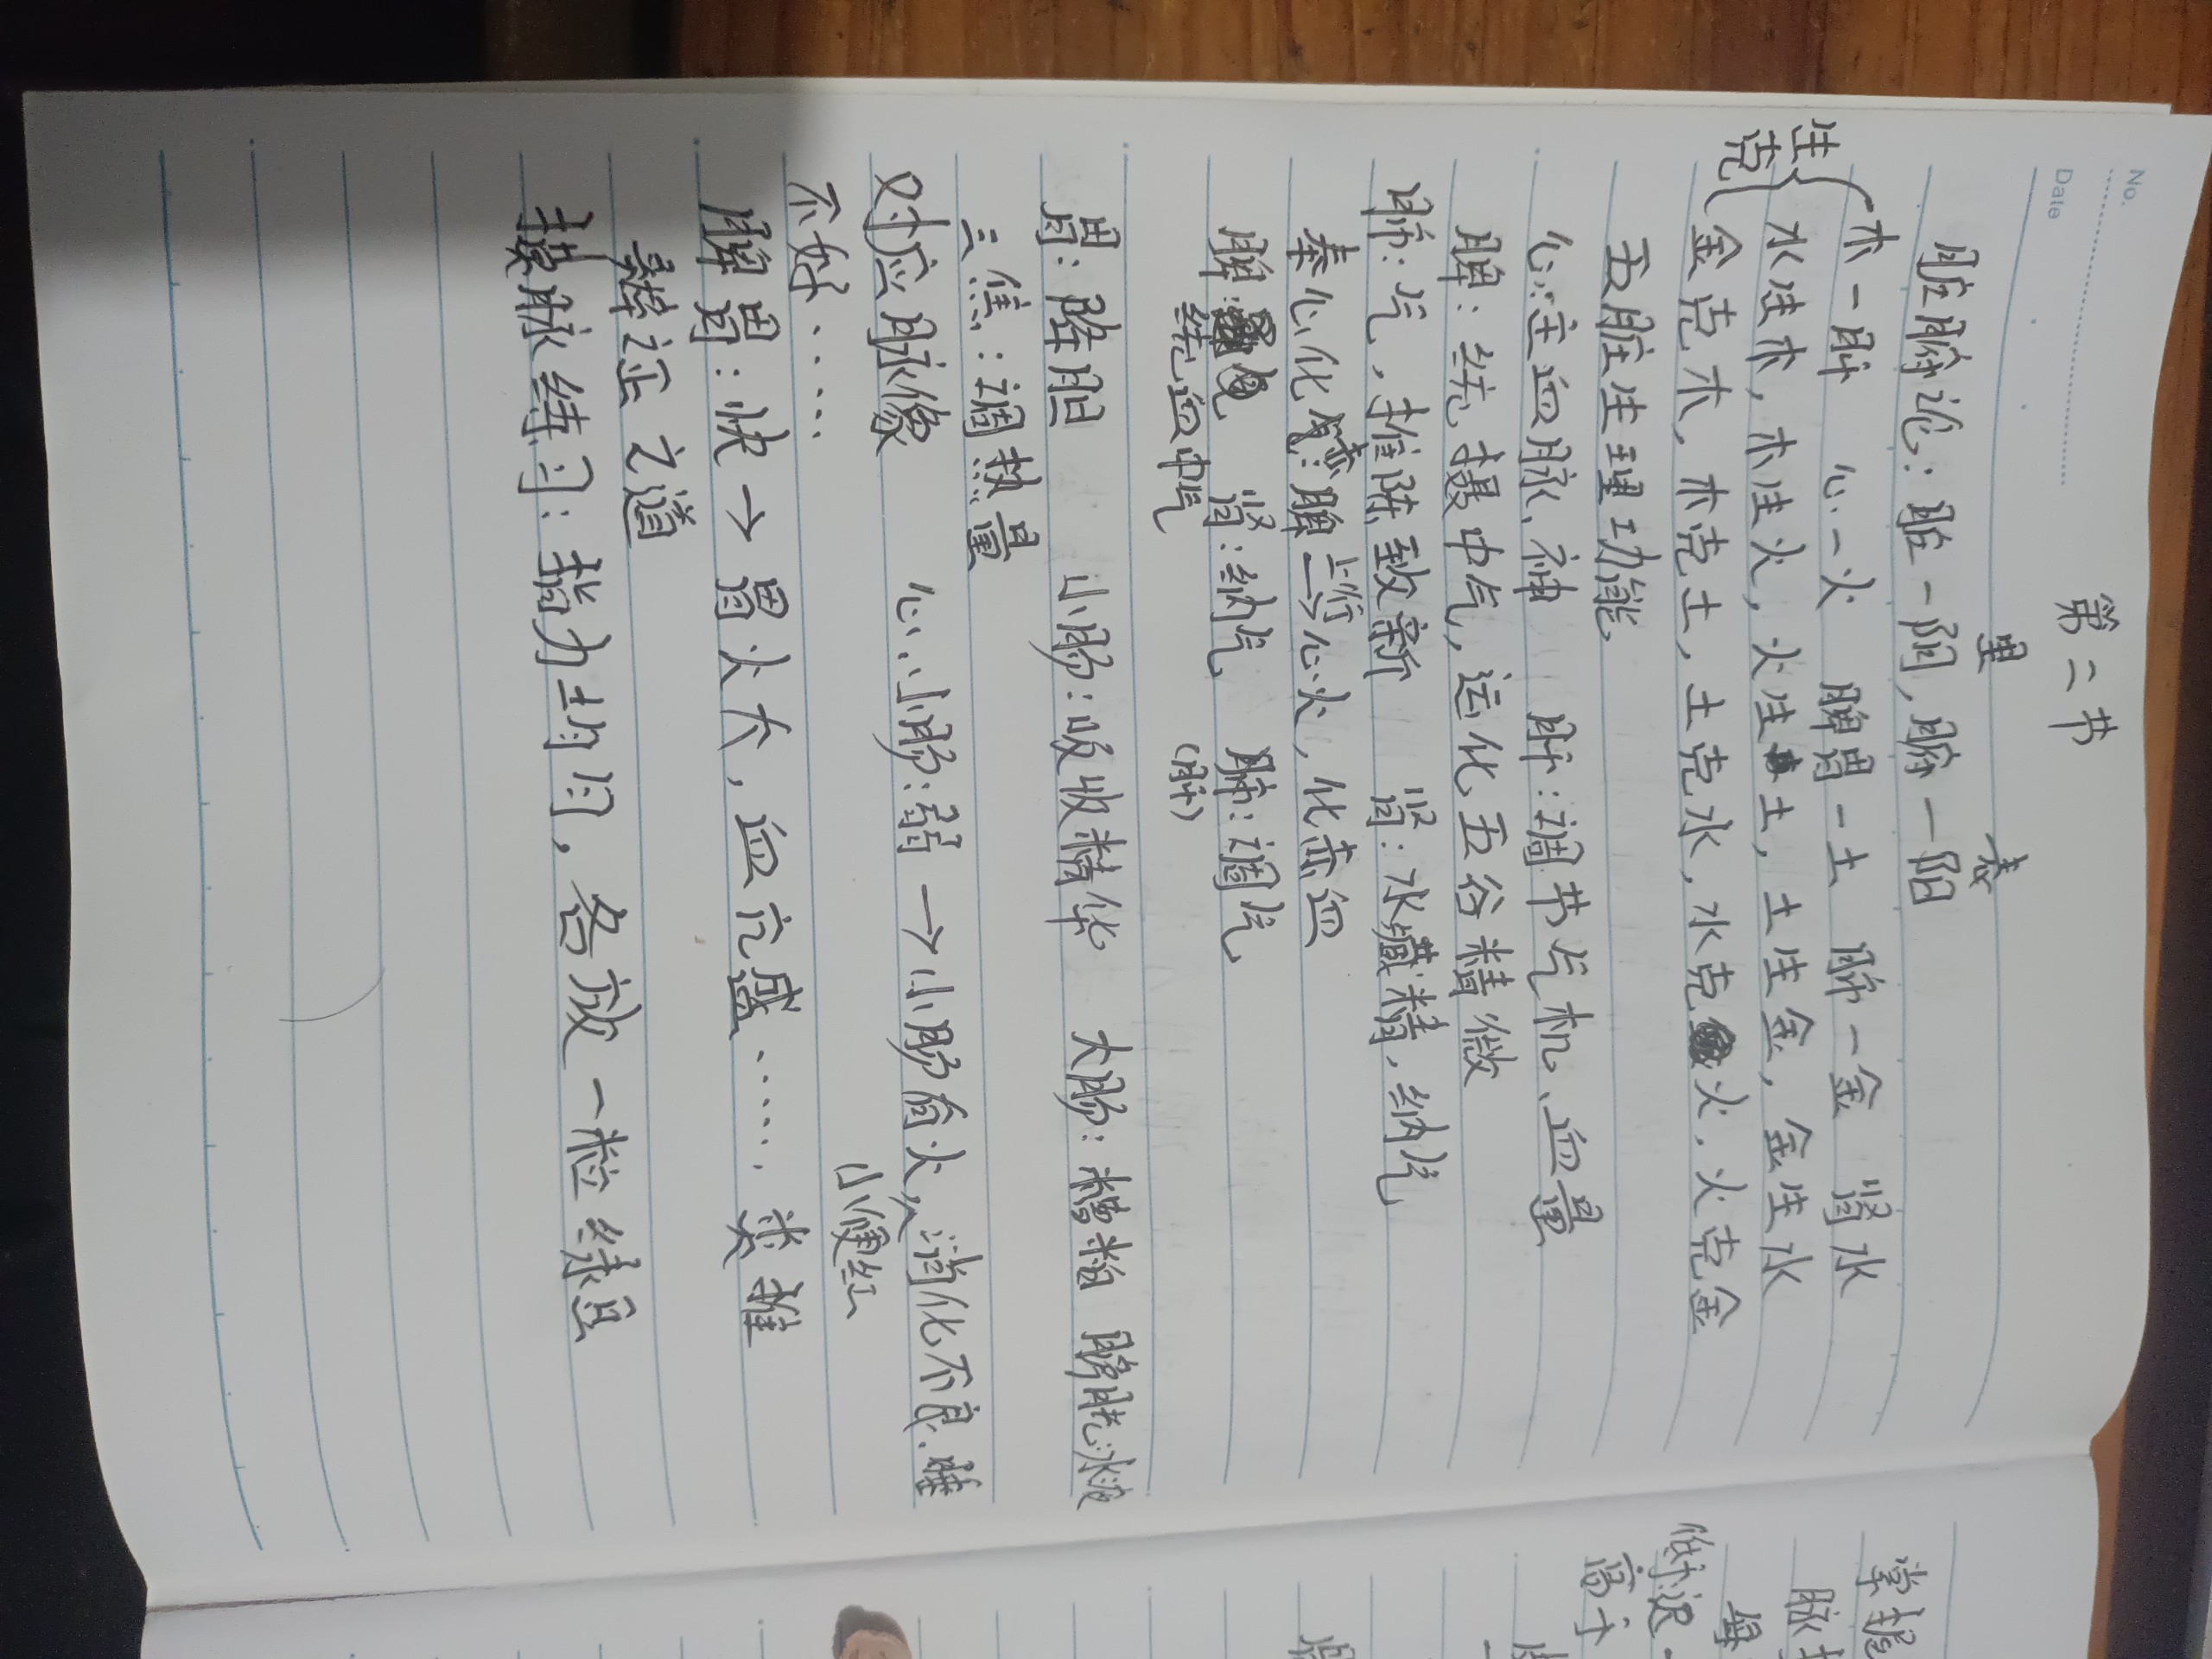 No.
Date
第二节
里 表
脏腑论：脏一阴，腑一阳
木一肝 心一火 脾胃一土 肺一金 肾水
生 水生木，木生火，火生土，土生金，金生水
克 金克木，木克土，土克水，水克火，火克金
五脏生理功能
心：主血脉、神 肝：调节气机、血量
脾：统摄中气，运化五谷精微
肺：气，推陈致新 肾：水藏精，纳气
奉心化赤：脾上行→心火，化赤血
脾： 肾：纳气 肺：调气
统血中气 (肝)
胃：降胆 小肠：吸收精华 大肠：糟粕 膀胱：水液
三焦：调热量
对应脉像 心、小肠：弱→小肠有火，消化不良，睡
不好…… 小便红
脾胃：快→胃火大，血亢盛……类推
辩证之道
摸脉练习：指力均匀，各放一粒绿豆
掌握
脉
每